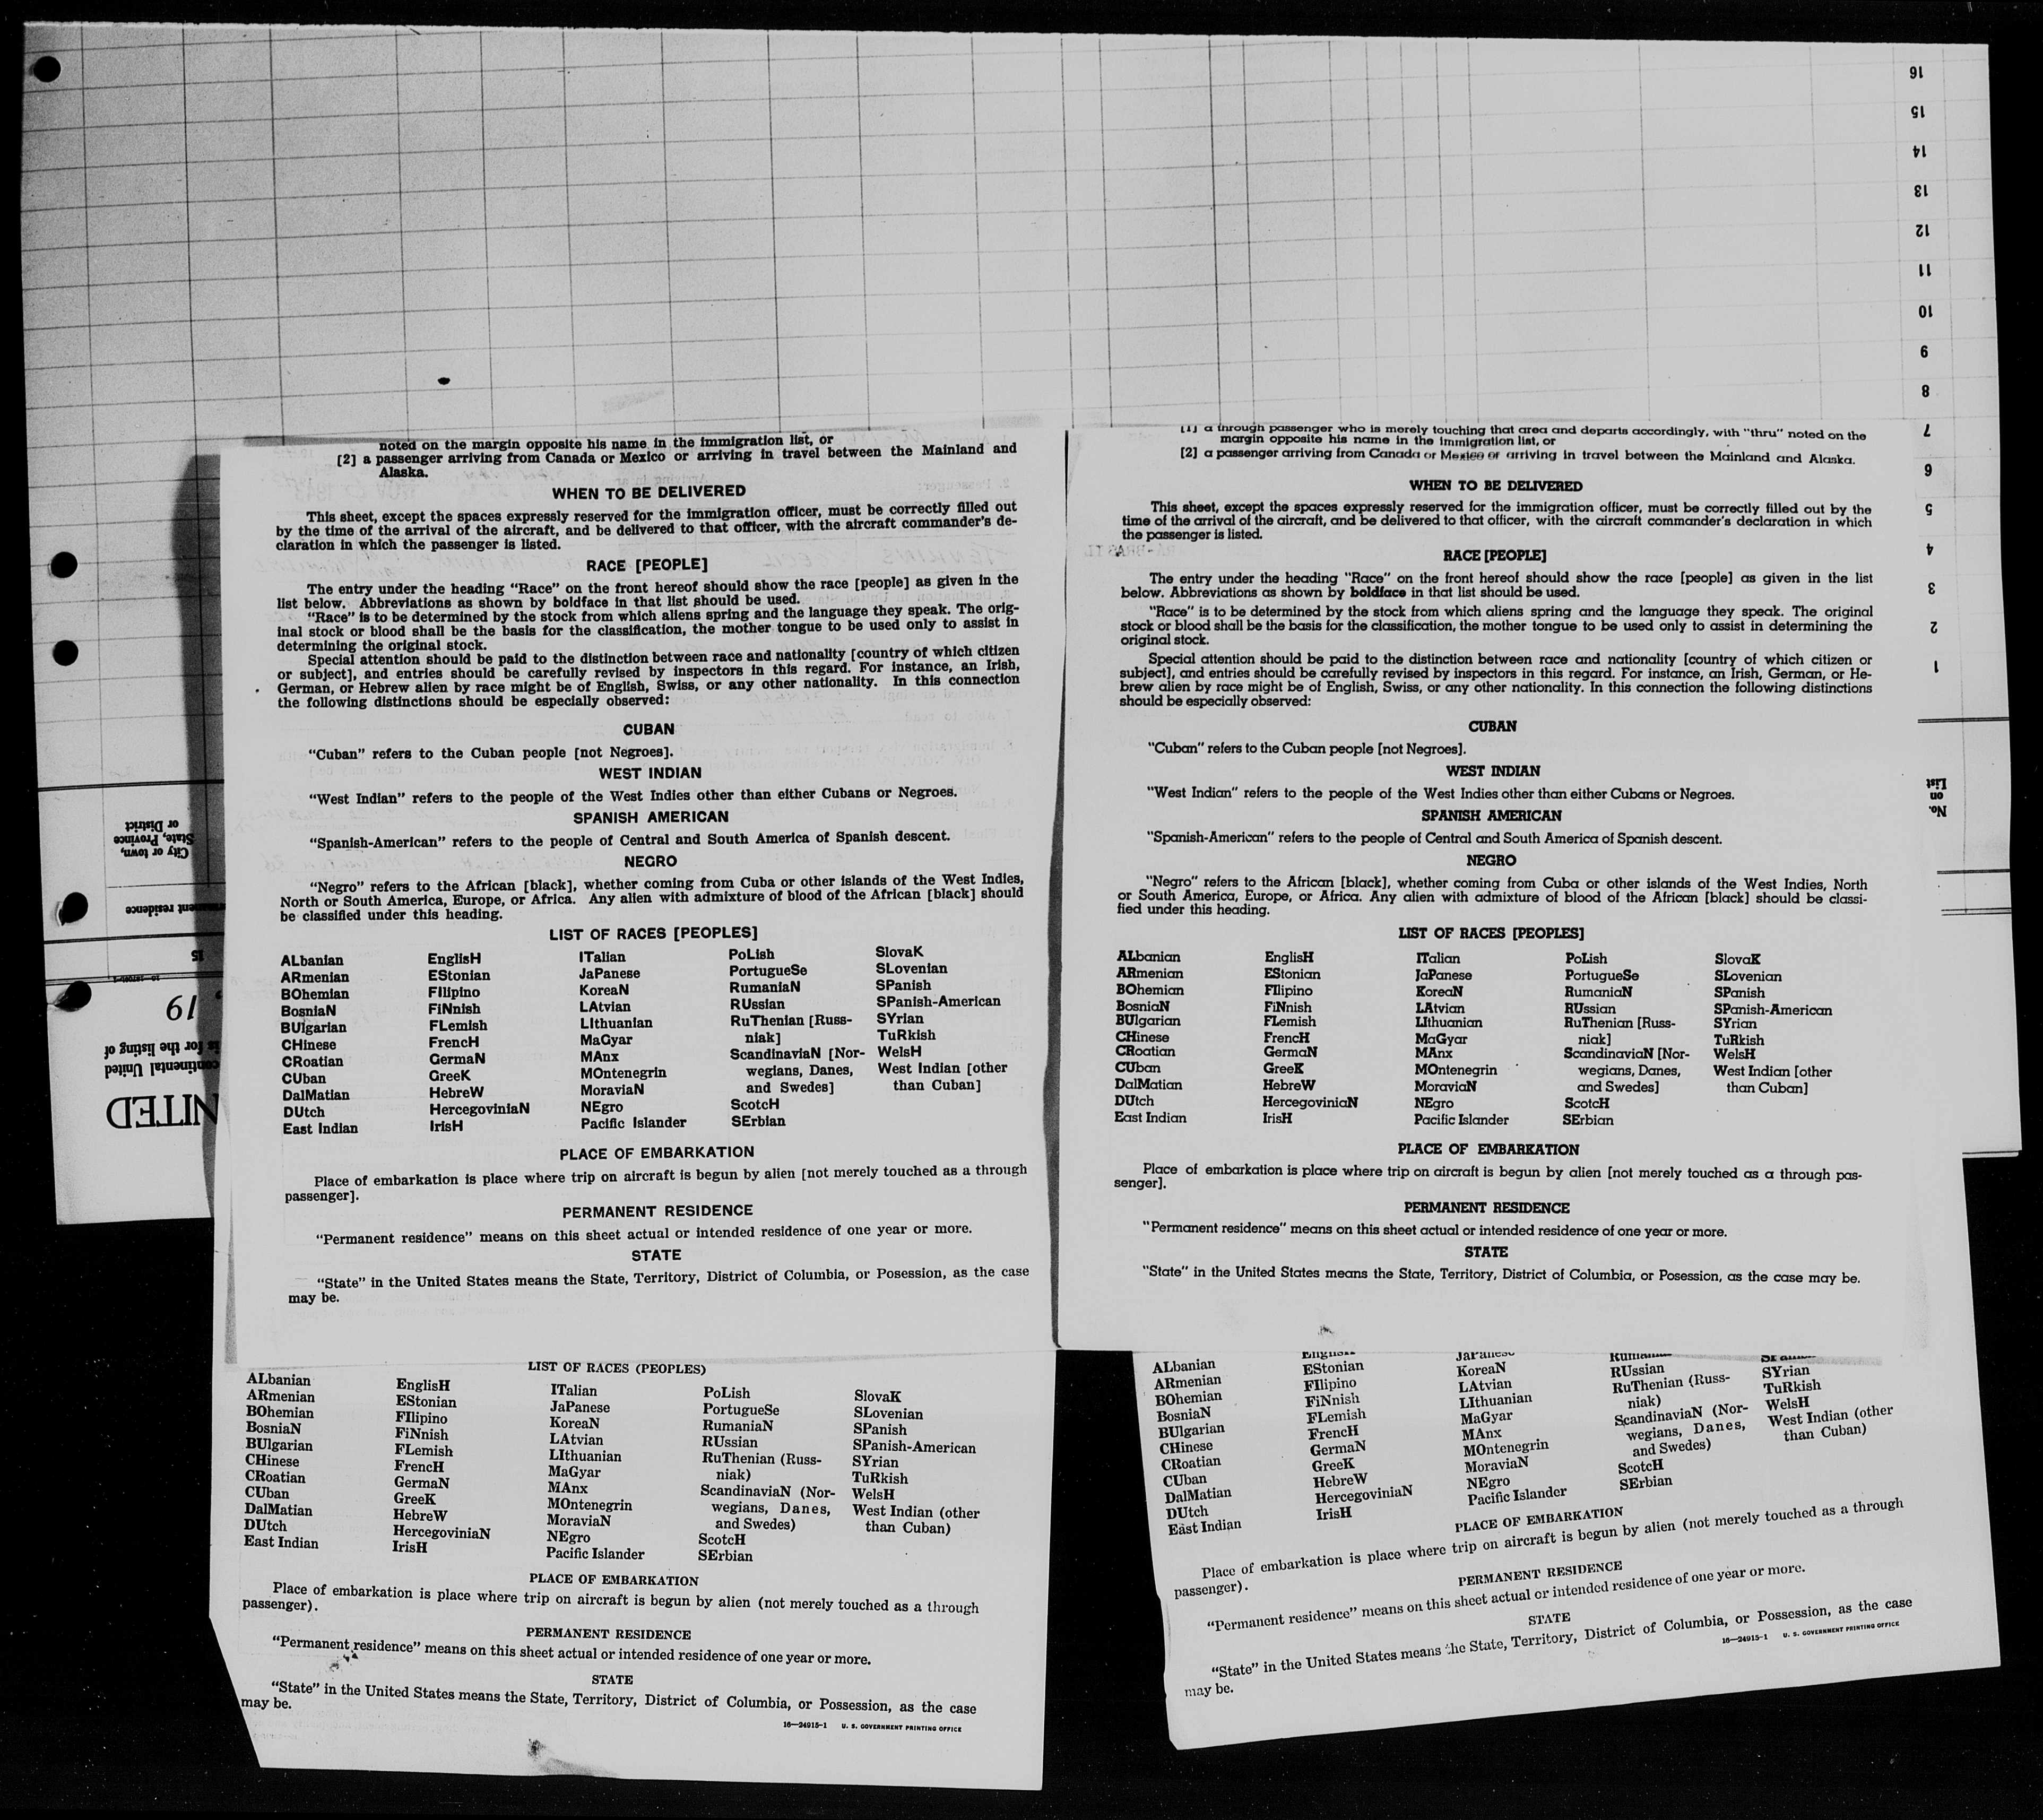 16
15
14
13
12
11
10
9
8
7
6
5
4
3
2
1
No.
on
List
City or town,
State, Province
or District
residence
15
19
for the listing of
continental United
NITED
noted on the margin opposite his name in the immigration list, or
[2] a passenger arriving from Canada or Mexico or arriving in travel between the Mainland and
Alaska.
WHEN TO BE DELIVERED
This sheet, except the spaces expressly reserved for the immigration officer, must be correctly filled out
by the time of the arrival of the aircraft, and be delivered to that officer, with the aircraft commander's de-
claration in which the passenger is listed.
RACE [PEOPLE]
The entry under the heading "Race" on the front hereof should show the race [people] as given in the
list below. Abbreviations as shown by boldface in that list should be used.
"Race" is to be determined by the stock from which aliens spring and the language they speak. The orig-
inal stock or blood shall be the basis for the classification, the mother tongue to be used only to assist in
determining the original stock.
Special attention should be paid to the distinction between race and nationality [country of which citizen
or subject], and entries should be carefully revised by inspectors in this regard. For instance, an Irish,
German, or Hebrew alien by race might be of English, Swiss, or any other nationality. In this connection
the following distinctions should be especially observed:
CUBAN
"Cuban" refers to the Cuban people [not Negroes].
WEST INDIAN
"West Indian" refers to the people of the West Indies other than either Cubans or Negroes.
SPANISH AMERICAN
"Spanish-American" refers to the people of Central and South America of Spanish descent.
NEGRO
"Negro" refers to the African [black], whether coming from Cuba or other islands of the West Indies,
North or South America, Europe, or Africa. Any alien with admixture of blood of the African [black] should
be classified under this heading.
LIST OF RACES [PEOPLES]
ALbanian
ARmenian
BOhemian
BosniaN
BUlgarian
CHinese
CRoatian
CUban
DalMatian
DUtch
East Indian
EnglisH
EStonian
FIlipino
FiNnish
FLemish
FrencH
GermaN
GreeK
HebreW
HercegoviniaN
IrisH
ITalian
JaPanese
KoreaN
LAtvian
LIthuanian
MaGyar
MAnx
MOntenegrin
MoraviaN
NEgro
Pacific Islander
PoLish
PortugueSe
RumaniaN
RUssian
RuThenian [Russ-
niak]
ScandinaviaN [Nor-
wegians, Danes,
and Swedes]
ScotcH
SErbian
SlovaK
SLovenian
SPanish
SPanish-American
SYrian
TuRkish
WelsH
West Indian [other
than Cuban]
PLACE OF EMBARKATION
Place of embarkation is place where trip on aircraft is begun by alien [not merely touched as a through
passenger].
PERMANENT RESIDENCE
"Permanent residence" means on this sheet actual or intended residence of one year or more.
STATE
"State" in the United States means the State, Territory, District of Columbia, or Posession, as the case
may be.
[1] a through passenger who is merely touching that area and departs accordingly, with "thru" noted on the
margin opposite his name in the immigration list, or
[2] a passenger arriving from Canada or Mexico or arriving in travel between the Mainland and Alaska.
WHEN TO BE DELIVERED
This sheet, except the spaces expressly reserved for the immigration officer, must be correctly filled out by the
time of the arrival of the aircraft, and be delivered to that officer, with the aircraft commander's declaration in which
the passenger is listed.
RACE [PEOPLE]
The entry under the heading "Race" on the front hereof should show the race [people] as given in the list
below. Abbreviations as shown by boldface in that list should be used.
"Race" is to be determined by the stock from which aliens spring and the language they speak. The original
stock or blood shall be the basis for the classification, the mother tongue to be used only to assist in determining the
original stock.
Special attention should be paid to the distinction between race and nationality [country of which citizen or
subject], and entries should be carefully revised by inspectors in this regard. For instance, an Irish, German, or He-
brew alien by race might be of English, Swiss, or any other nationality. In this connection the following distinctions
should be especially observed:
CUBAN
"Cuban" refers to the Cuban people [not Negroes].
WEST INDIAN
"West Indian" refers to the people of the West Indies other than either Cubans or Negroes.
SPANISH AMERICAN
"Spanish-American" refers to the people of Central and South America of Spanish descent.
NEGRO
"Negro" refers to the African [black], whether coming from Cuba or other islands of the West Indies, North
or South America, Europe, or Africa. Any alien with admixture of blood of the African [black] should be classi-
fied under this heading.
LIST OF RACES [PEOPLES]
ALbanian
ARmenian
BOhemian
BosniaN
BUlgarian
CHinese
CRoatian
CUban
DalMatian
DUtch
East Indian
EnglisH
EStonian
FIlipino
FiNnish
FLemish
FrencH
GermaN
GreeK
HebreW
HercegoviniaN
IrisH
ITalian
JaPanese
KoreaN
LAtvian
LIthuanian
MaGyar
MAnx
MOntenegrin
MoraviaN
NEgro
Pacific Islander
PoLish
PortugueSe
RumaniaN
RUssian
RuThenian [Russ-
niak]
ScandinaviaN [Nor-
wegians, Danes,
and Swedes]
ScotcH
SErbian
SlovaK
SLovenian
SPanish
SPanish-American
SYrian
TuRkish
WelsH
West Indian [other
than Cuban]
PLACE OF EMBARKATION
Place of embarkation is place where trip on aircraft is begun by alien [not merely touched as a through pas-
senger].
PERMANENT RESIDENCE
"Permanent residence" means on this sheet actual or intended residence of one year or more.
STATE
"State" in the United States means the State, Territory, District of Columbia, or Posession, as the case may be.
LIST OF RACES (PEOPLES)
ALbanian
ARmenian
BOhemian
BosniaN
BUlgarian
CHinese
CRoatian
CUban
DalMatian
DUtch
East Indian
EnglisH
EStonian
FIlipino
FiNnish
FLemish
FrencH
GermaN
GreeK
HebreW
HercegoviniaN
IrisH
ITalian
JaPanese
KoreaN
LAtvian
LIthuanian
MaGyar
MAnx
MOntenegrin
MoraviaN
NEgro
Pacific Islander
PoLish
PortugueSe
RumaniaN
RUssian
RuThenian (Russ-
niak)
ScandinaviaN (Nor-
wegians, Danes,
and Swedes)
ScotcH
SErbian
SlovaK
SLovenian
SPanish
SPanish-American
SYrian
TuRkish
WelsH
West Indian (other
than Cuban)
PLACE OF EMBARKATION
Place of embarkation is place where trip on aircraft is begun by alien (not merely touched as a through
passenger).
PERMANENT RESIDENCE
"Permanent residence" means on this sheet actual or intended residence of one year or more.
STATE
"State" in the United States means the State, Territory, District of Columbia, or Possession, as the case
may be.
16—24915-1 U. S. GOVERNMENT PRINTING OFFICE
ALbanian
ARmenian
BOhemian
BosniaN
BUlgarian
CHinese
CRoatian
CUban
DalMatian
DUtch
East Indian
EnglisH
EStonian
FIlipino
FiNnish
FLemish
FrencH
GermaN
GreeK
HebreW
HercegoviniaN
IrisH
JaPanese
KoreaN
LAtvian
LIthuanian
MaGyar
MAnx
MOntenegrin
MoraviaN
NEgro
Pacific Islander
RUssian
RuThenian (Russ-
niak)
ScandinaviaN (Nor-
wegians, Danes,
and Swedes)
ScotcH
SErbian
SYrian
TuRkish
WelsH
West Indian (other
than Cuban)
PLACE OF EMBARKATION
Place of embarkation is place where trip on aircraft is begun by alien (not merely touched as a through
passenger).
PERMANENT RESIDENCE
"Permanent residence" means on this sheet actual or intended residence of one year or more.
STATE
"State" in the United States means the State, Territory, District of Columbia, or Possession, as the case
may be.
16—24915-1 U. S. GOVERNMENT PRINTING OFFICE